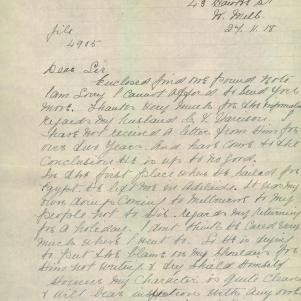 W. Melb.
27.11.18
file
4905
Dear Sir
Enclosed find one pound note
I am Sorry I cannot afford to send you
more. Thanks Very much for the information
regards my husband
I have not received a letter from him for
over two years. And have come to the
Conclusion he is up to no good.
In the first place when he sailed for
Egypt he left me in Adelaide. It was my
own doings Coming to Melbourne to my
people not to his. regards my returning
for a holiday. I dont think he Cared very
much where I went to. So he is trying
to put the blame on my Shoulders for
him not writing &
my Character is quite Clear
& will bear inspection with any